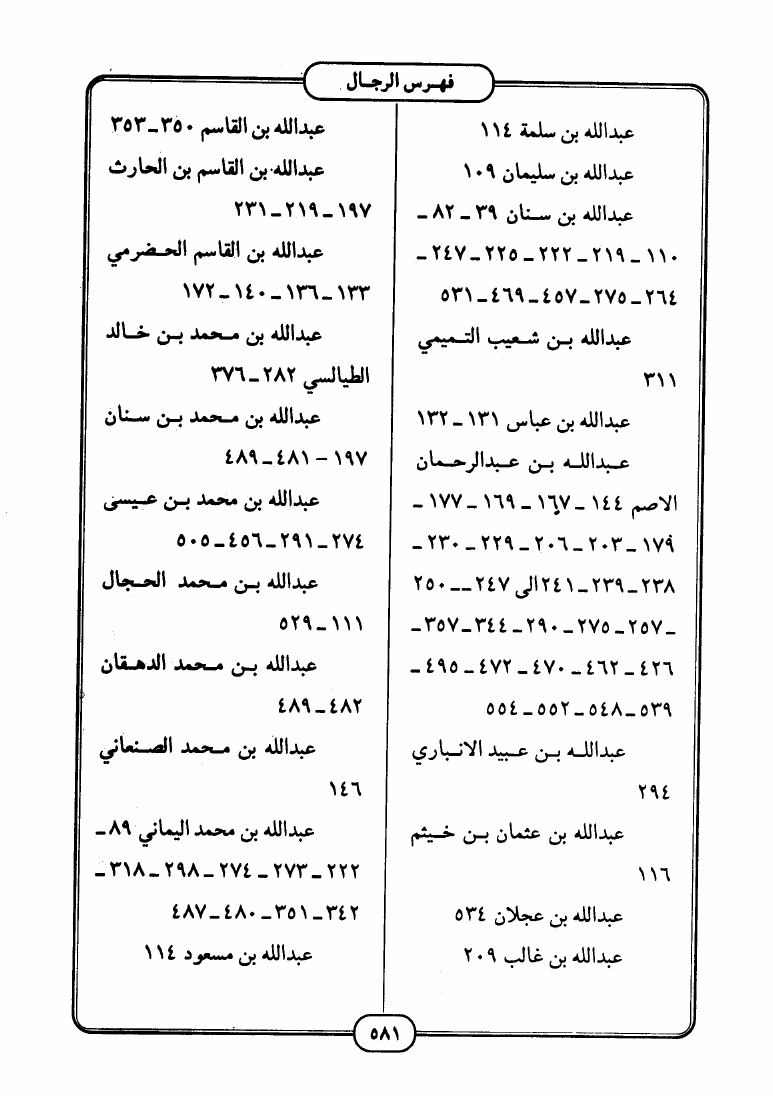 فهرس الرجال
عبدالله بن سلمة ١١٤
عبدالله بن سليمان ١٠٩
عبدالله بن سنان ٣٩ ـ ٨٢ ـ
١١٠ ـ ٢١٩ ـ ٢٢٢ ـ ٢٢٥ ـ ٢٤٧ ـ
٢٦٤ ـ ٢٧٥ ـ ٤٥٧ ـ ٤٦٩ ـ ٥٣١
عبدالله بن شعيب التميمي
٣١١
عبدالله بن عباس ١٣١ ـ ١٣٢
عبدالله بن عبدالرحمان
الاصم ١٤٤ ـ ١٦٧ ـ ١٦٩ ـ ١٧٧ ـ
١٧٩ ـ ٢٠٣ ـ ٢٠٦ ـ ٢٢٩ ـ ٢٣٠ ـ
٢٣٨ ـ ٢٣٩ ـ ٢٤١ الى ٢٤٧ ــ ٢٥٠
ـ ٢٥٧ ـ ٢٧٥ ـ ٢٩٠ ـ ٣٤٤ ـ ٣٥٧ ـ
٤٢٦ ـ ٤٦٢ ـ ٤٧٠ ـ ٤٧٢ ـ ٤٩٥ ـ
٥٣٩ ـ ٥٤٨ ـ ٥٥٢ ـ ٥٥٤
عبدالله بن عبيد الانباري
٢٩٤
عبدالله بن عثمان بن خيثم
١١٦
عبدالله بن عجلان ٥٣٤
عبدالله بن غالب ٢٠٩
عبدالله بن القاسم ٣٥٠ ـ ٣٥٣
عبدالله بن القاسم بن الحارث
١٩٧ ـ ٢١٩ ـ ٢٣١
عبدالله بن القاسم الحضرمي
١٣٣ ـ ١٣٦ ـ ١٤٠ ـ ١٧٢
عبدالله بن محمد بن خالد
الطيالسي ٢٨٢ ـ ٣٧٦
عبدالله بن محمد بن سنان
١٩٧ ـ ٤٨١ ـ ٤٨٩
عبدالله بن محمد بن عيسى
٢٧٤ ـ ٢٩١ ـ ٤٥٦ ـ ٥٠٥
عبدالله بن محمد الحجال
١١١ ـ ٥٢٩
عبدالله بن محمد الدهقان
٤٨٢ ـ ٤٨٩
عبدالله بن محمد الصنعاني
١٤٦
عبدالله بن محمد اليماني ٨٩ ـ
٢٢٢ ـ ٢٧٣ ـ ٢٧٤ ـ ٢٩٨ ـ ٣١٨ ـ
٣٤٢ ـ ٣٥١ ـ ٤٨٠ ـ ٤٨٧
عبدالله بن مسعود ١١٤
٥٨١